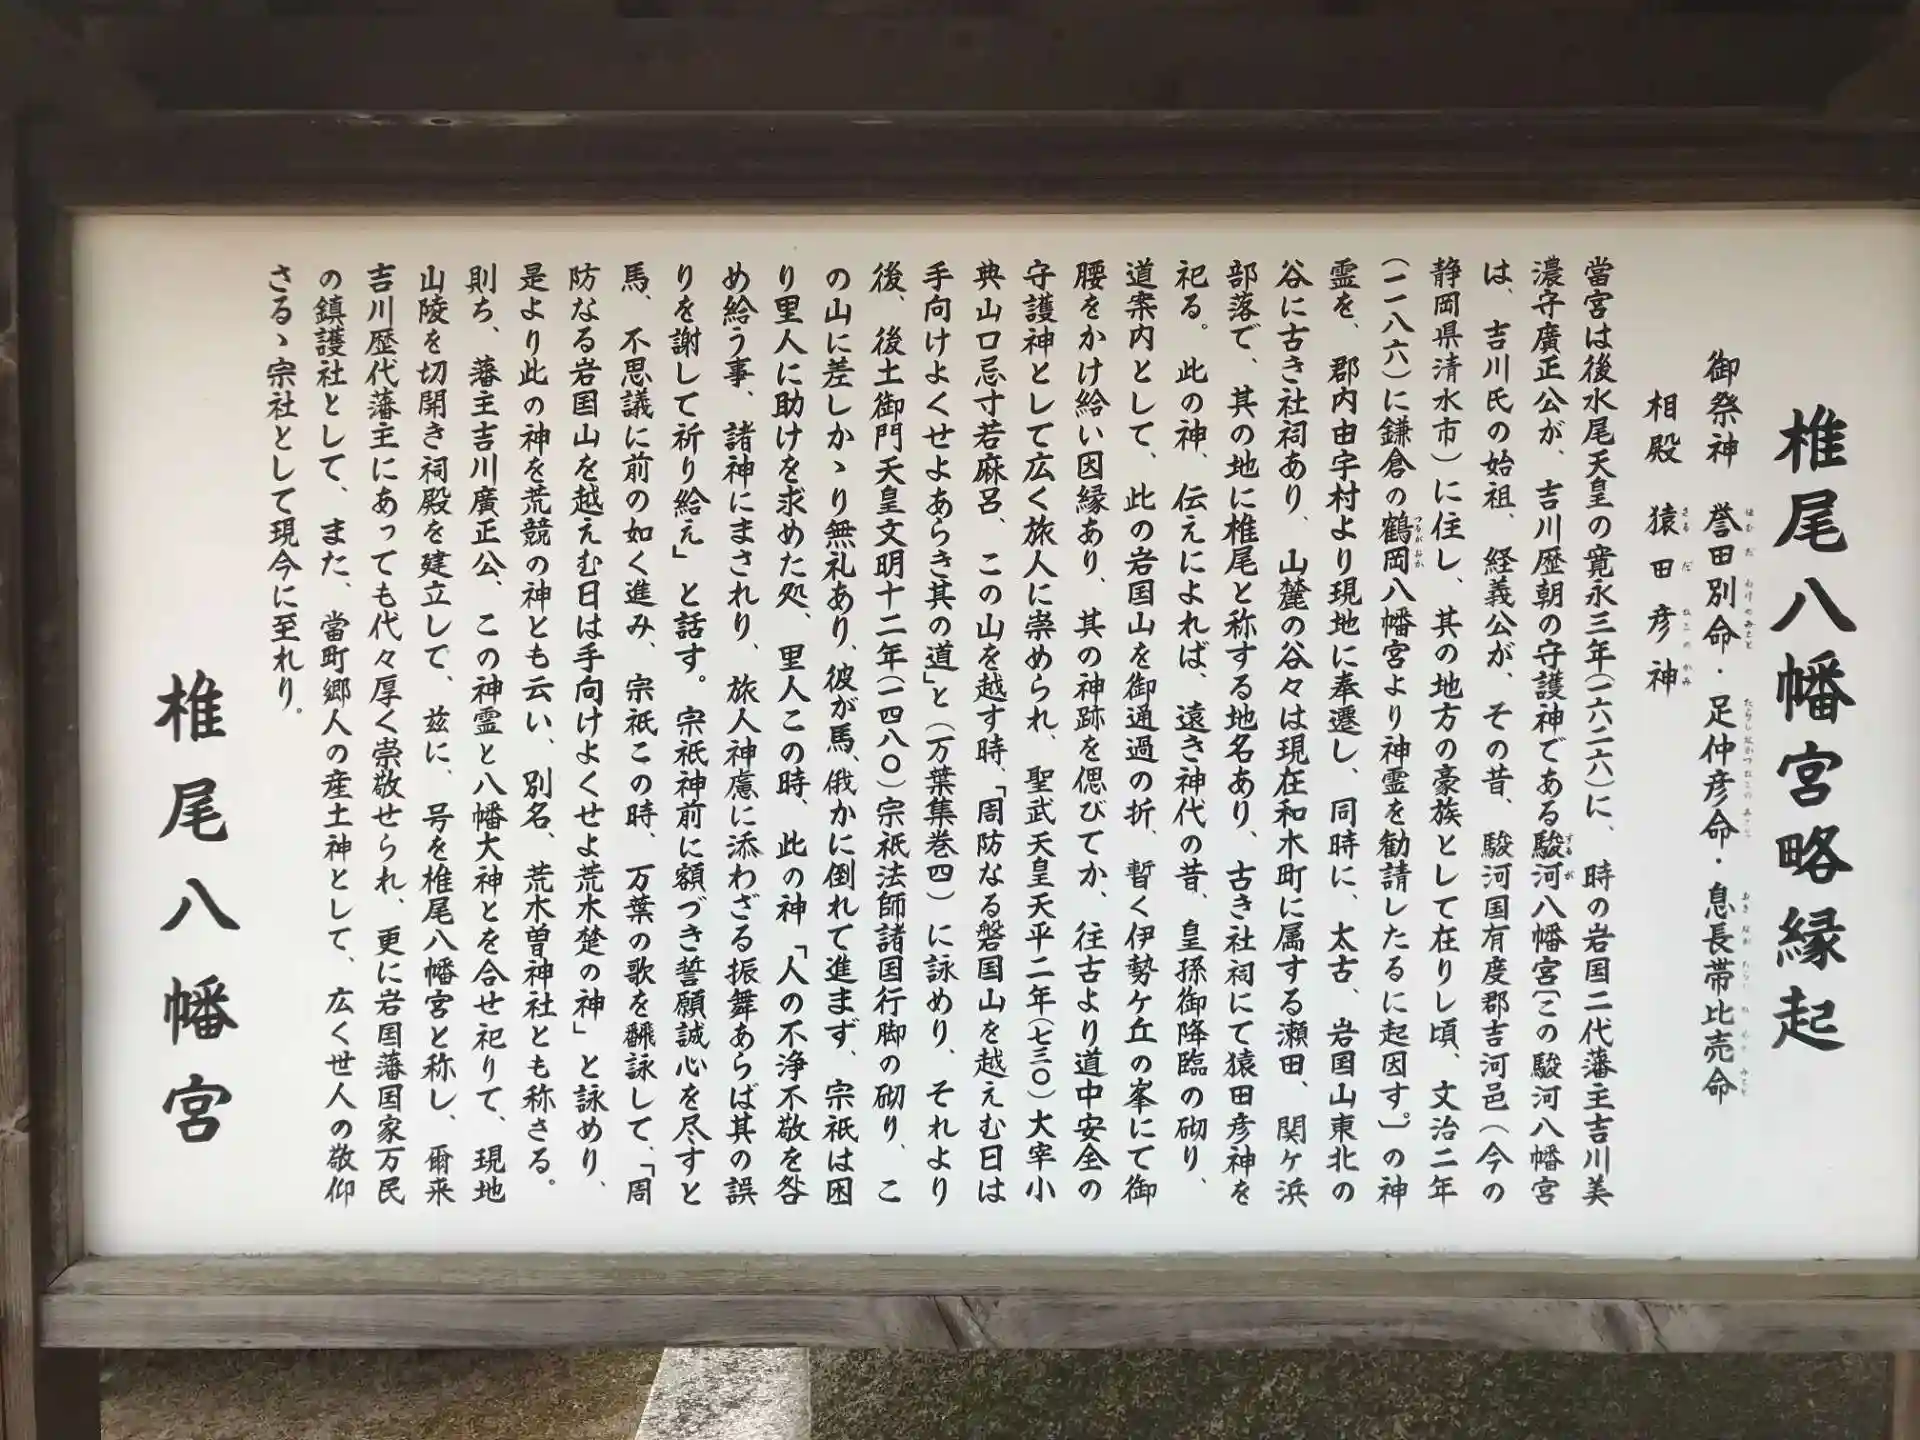 椎尾八幡宮略縁起
御祭神　誉田別命・足仲彦命・息長帯比売命
相殿　猿田彦神
當宮は後水尾天皇の寛永三年（一六二六）に、時の岩国二代藩主吉川美
濃守廣正公が、吉川歴朝の守護神である駿河八幡宮〔この駿河八幡宮
は、吉川氏の始祖、経義公が、その昔、駿河国有度郡吉河邑（今の
静岡県清水市）に住し、其の地方の豪族として在りし頃、文治二年
（一一八六）に鎌倉の鶴岡八幡宮より神霊を勧請したるに起因す。〕の神
霊を、郡内由宇村より現地に奉遷し、同時に、太古、岩国山東北の
谷に古き社祠あり、山麓の谷々は現在和木町に属する瀬田、関ヶ浜
部落で、其の地に椎尾と称する地名あり、古き社祠にて猿田彦神を
祀る。此の神、伝えによれば、遠き神代の昔、皇孫御降臨の砌り、
道案内として、此の岩国山を御通過の折、暫く伊勢ケ丘の峯にて御
腰をかけ給い因縁あり、其の神跡を偲びてか、往古より道中安全の
守護神として広く旅人に崇められ、聖武天皇天平二年（七三〇）大宰小
典山口忌寸若麻呂、この山を越す時、「周防なる磐国山を越えむ日は
手向けよくせよあらき其の道」と（万葉集巻四）に詠めり、それより
後、後土御門天皇文明十二年（一四八〇）宗祇法師諸国行脚の砌り、こ
の山に差しかゝり無礼あり、彼が馬、俄かに倒れて進まず、宗祇は困
り里人に助けを求めた処、里人この時、此の神「人の不浄不敬を咎
め給う事、諸神にまされり、旅人神慮に添わざる振舞あらば其の誤
りを謝して祈り給え」と話す。宗祇神前に額づき誓願誠心を尽すと
馬、不思議に前の如く進み、宗祇この時、万葉の歌を飜詠して、「周
防なる岩国山を越えむ日は手向けよくせよ荒木楚の神」と詠めり、
是より此の神を荒競の神とも云い、別名、荒木曽神社とも称さる。
則ち、藩主吉川廣正公、この神霊と八幡大神とを合せ祀りて、現地
山陵を切開き祠殿を建立して、茲に、号を椎尾八幡宮と称し、爾来
吉川歴代藩主にあっても代々厚く崇敬せられ、更に岩国藩国家万民
の鎮護社として、また、當町郷人の産土神として、広く世人の敬仰
さるゝ宗社として現今に至れり。
椎尾八幡宮